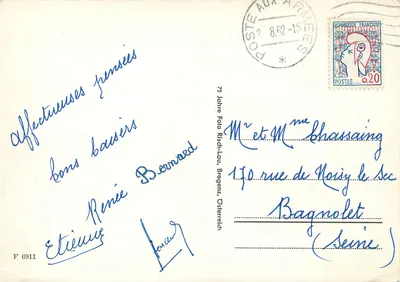 POSTE AUX ARMÉES
8.62-15
RÉPUBLIQUE FRANÇAISE
POSTES 0,20
Affectueuses pensées
bons baisers
Renée Bernard
Etienne
75 Jahre Foto Risch-Lau, Bregenz, Österreich
Mr et Mme Chassaing
170 rue de Noisy le Sec
Bagnolet
(Seine)
F 6911